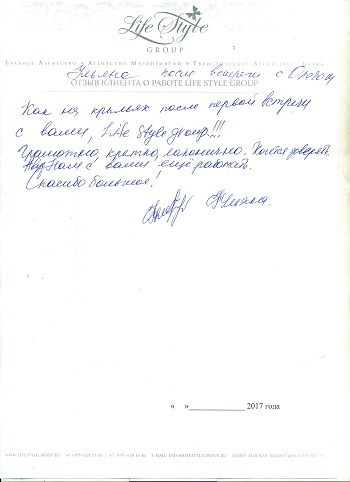 Life Style
GROUP
Брачное Агентство • Агентство Мероприятий • Туристическое Агентство
Ульяна после встречи с Олегом
ОТЗЫВ КЛИЕНТА О РАБОТЕ LIFE STYLE GROUP
Как на крыльях после первой встречи
с вами, Life Style group!!!
Грамотно, кратко, лаконично. Хочется доверять
с вами ещё работать.
Спасибо большое!
Ульяна
« » 2017 года
WWW.LIFESTYLEGROUP.RU E-MAIL: INFO@LIFESTYLEGROUP.RU